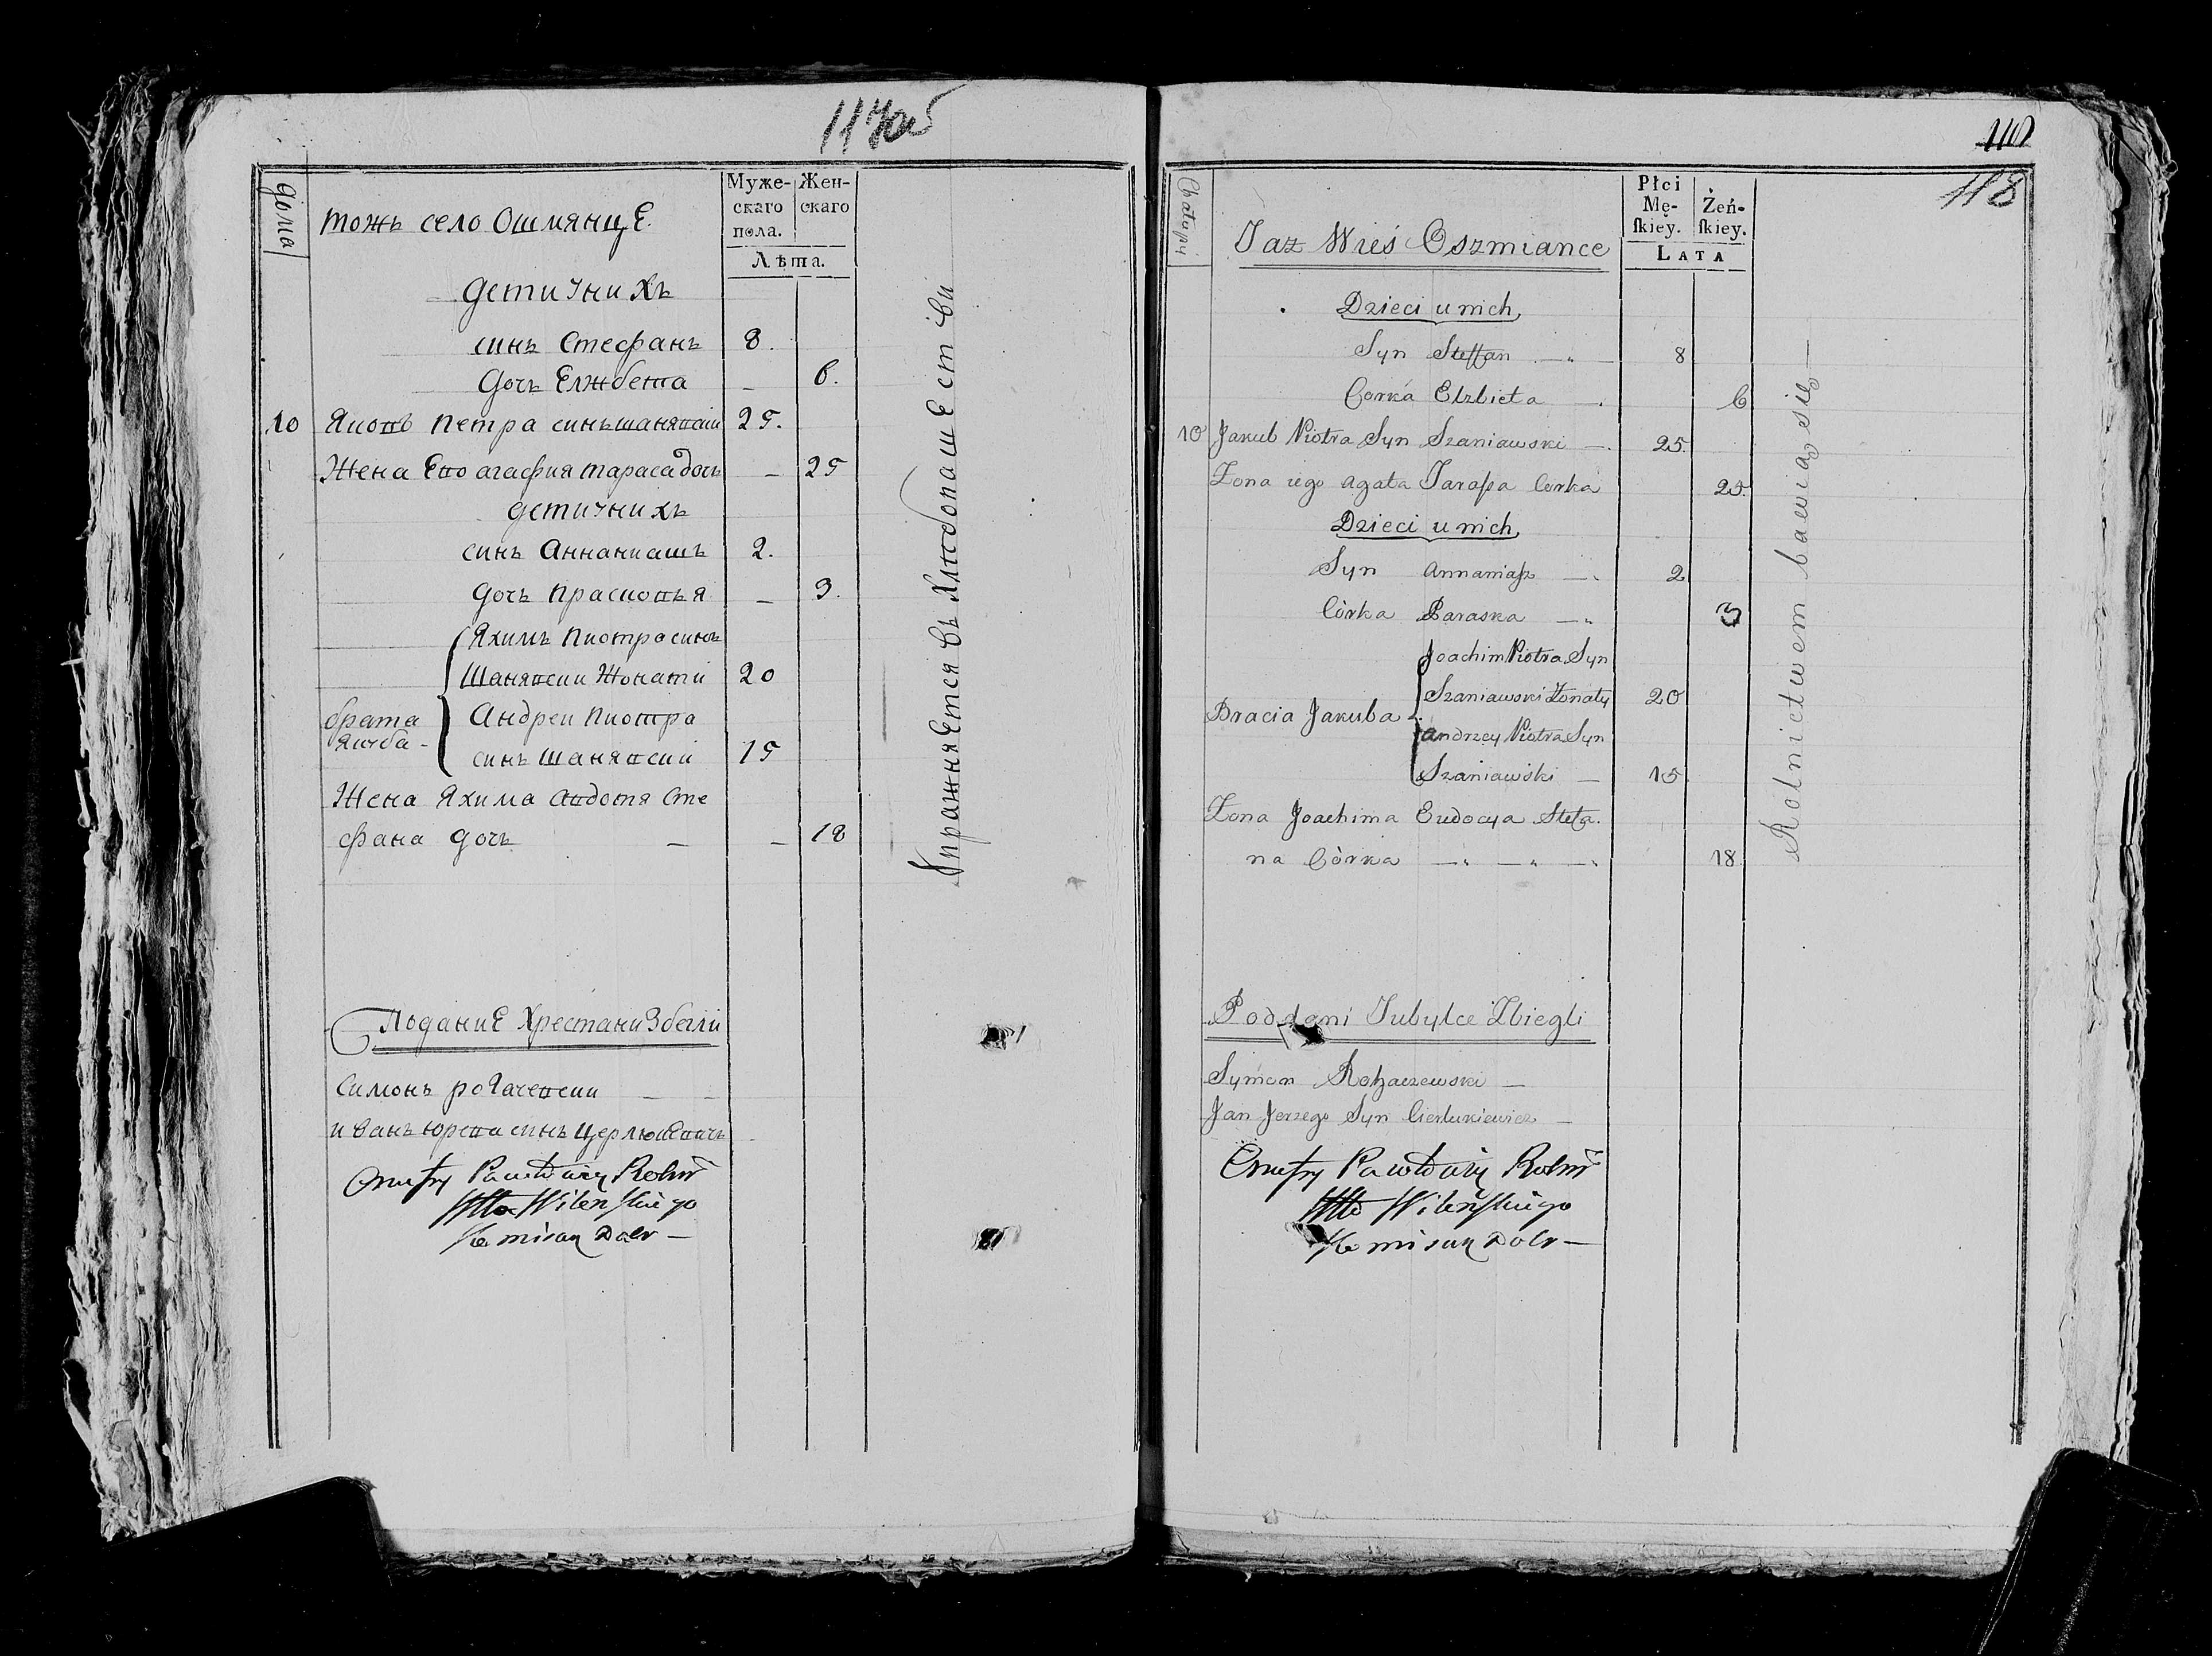 117об
Дома
тожь село ОшмянцЕ.
Муже-
скаго
пола.
Жен-
скаго
Лѣта.
Дети У них
синь Стефань 8.
Дочь Елжбета – 6.
10 Якопь петра синь шанявский 25.
Жена Его агафия тараса дочь – 25
дети У них
синь Аннаниашь 2.
дочь праскопья – 3.
Яхимь Пиотра синь
Шанявский Жонатый 20
брата Якуба –
Андрей Пиотра
синь шанявский 15
Жена Яхима Авдотя Сте
фана дочь – – 18
УпражняЕтся вь ХлѣбопашЕстви
ПоданиЕ Хрестани Збегли
Симонь рогачевский – –
иванъ юрева синь ЦерлюкЕвичь
Onufry Pawłowicz Rotm
Wttwa Wileńskiego
Komisarz Dobr –
118
Chałupy
Taż Wieś Oszmiance
Płci
Mę-
ſkiey.
Żeń-
ſkiey.
LATA
Dzieci u nich
Syn Steffan – 8
Corka Elzbieta – 6
10 Jakub Piotra Syn Szaniawski – 25.
Zona iego agata Taraſsa Corka 25.
Dzieci u nich
Syn Annaniaſz – 2
Córka Paraska – 3
Joachim Piotra Syn
Szaniawski Żonaty 20
Bracia Jakuba
Andrzey Piotra Syn
Szaniawski – 15
Zona Joachima Eudocya Stefa.
na Córka – – – 18
Rolnictwem bawią się –
Poddani Tubylce Zbiegli
Symon Rohaczewski –
Jan Jerzego Syn Cierlukiewicz –
Onufry Pawłowicz Rotm
Wttwa Wileńskiego
Komisarz Dobr –